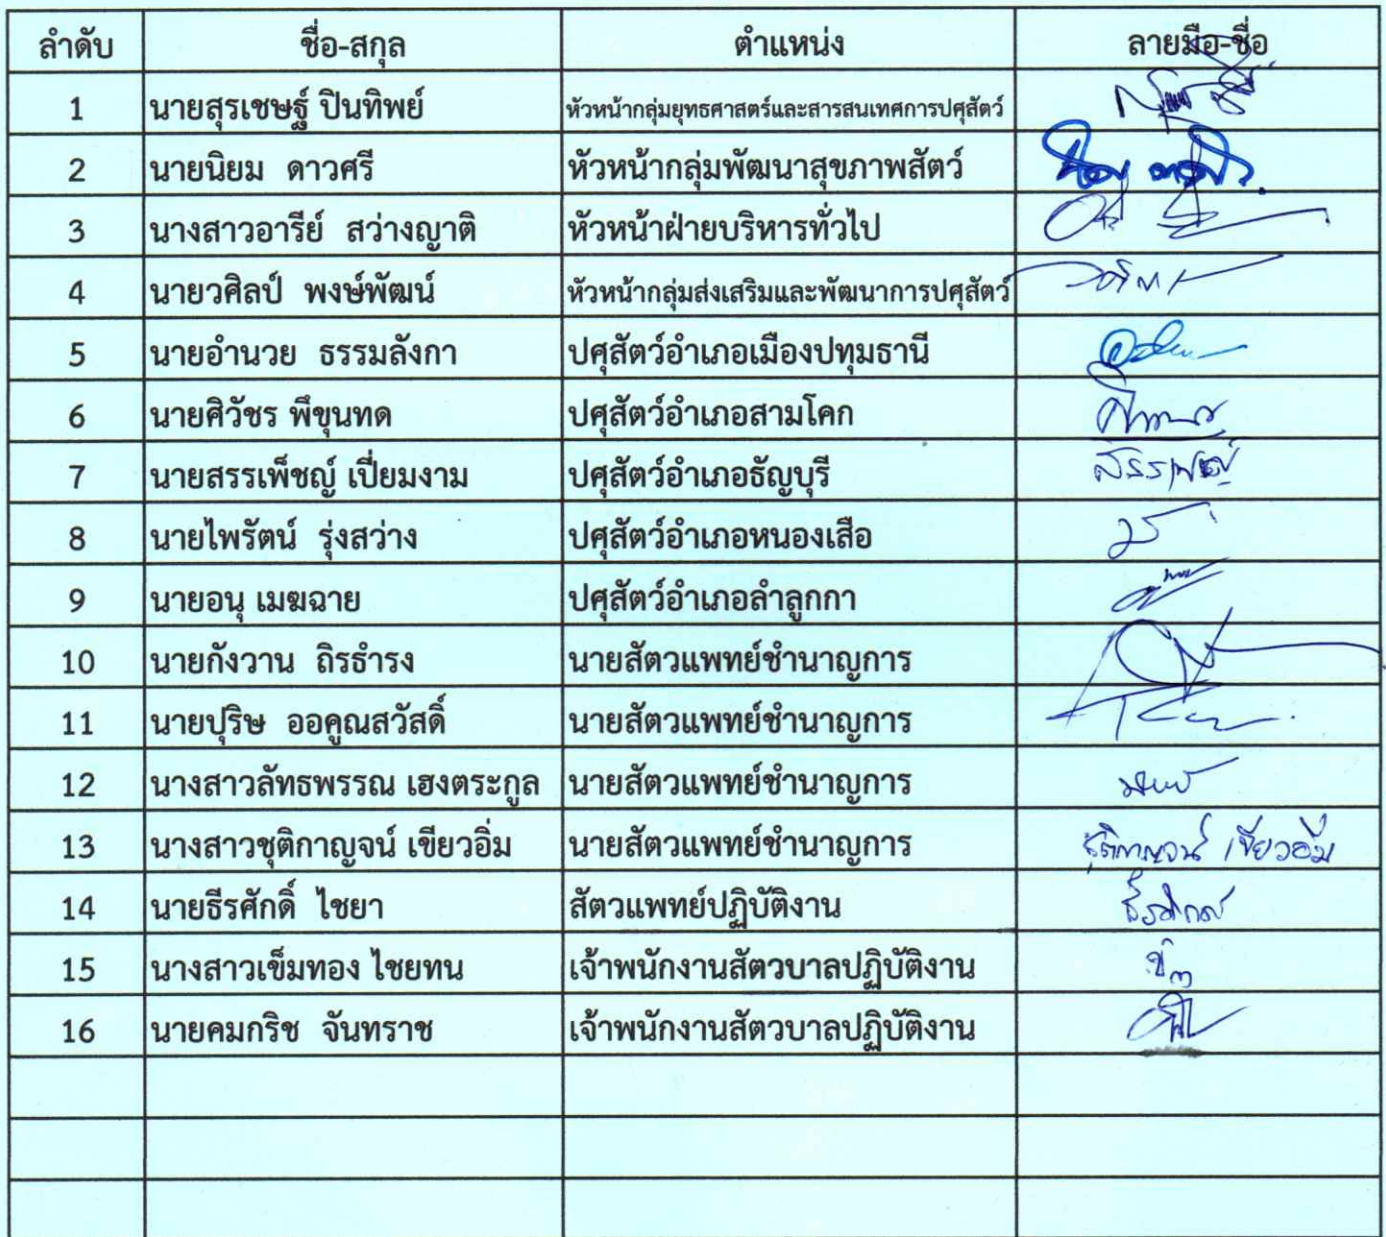 ลำดับ ชื่อ-สกุล ตำแหน่ง ลายมือ-ชื่อ
1 นายสุรเชษฐ์ ปินทิพย์ หัวหน้ากลุ่มยุทธศาสตร์และสารสนเทศการปศุสัตว์
2 นายนิยม ดาวศรี หัวหน้ากลุ่มพัฒนาสุขภาพสัตว์
3 นางสาวอารีย์ สว่างญาติ หัวหน้าฝ่ายบริหารทั่วไป
4 นายวศิลป์ พงษ์พัฒน์ หัวหน้ากลุ่มส่งเสริมและพัฒนาการปศุสัตว์
5 นายอำนวย ธรรมลังกา ปศุสัตว์อำเภอเมืองปทุมธานี
6 นายศิวัชร พึขุนทด ปศุสัตว์อำเภอสามโคก
7 นายสรรเพ็ชญ์ เปี่ยมงาม ปศุสัตว์อำเภอธัญบุรี สรรเพชญ์
8 นายไพรัตน์ รุ่งสว่าง ปศุสัตว์อำเภอหนองเสือ
9 นายอนุ เมฆฉาย ปศุสัตว์อำเภอลำลูกกา
10 นายกังวาน ถิรธำรง นายสัตวแพทย์ชำนาญการ
11 นายปุริษ ออคูณสวัสดิ์ นายสัตวแพทย์ชำนาญการ
12 นางสาวลัทธพรรณ เฮงตระกูล นายสัตวแพทย์ชำนาญการ
13 นางสาวชุติกาญจน์ เขียวอิ่ม นายสัตวแพทย์ชำนาญการ ชุติกาญจน์ เขียวอิ่ม
14 นายธีรศักดิ์ ไชยา สัตวแพทย์ปฏิบัติงาน
15 นางสาวเข็มทอง ไชยทน เจ้าพนักงานสัตวบาลปฏิบัติงาน
16 นายคมกริช จันทราช เจ้าพนักงานสัตวบาลปฏิบัติงาน